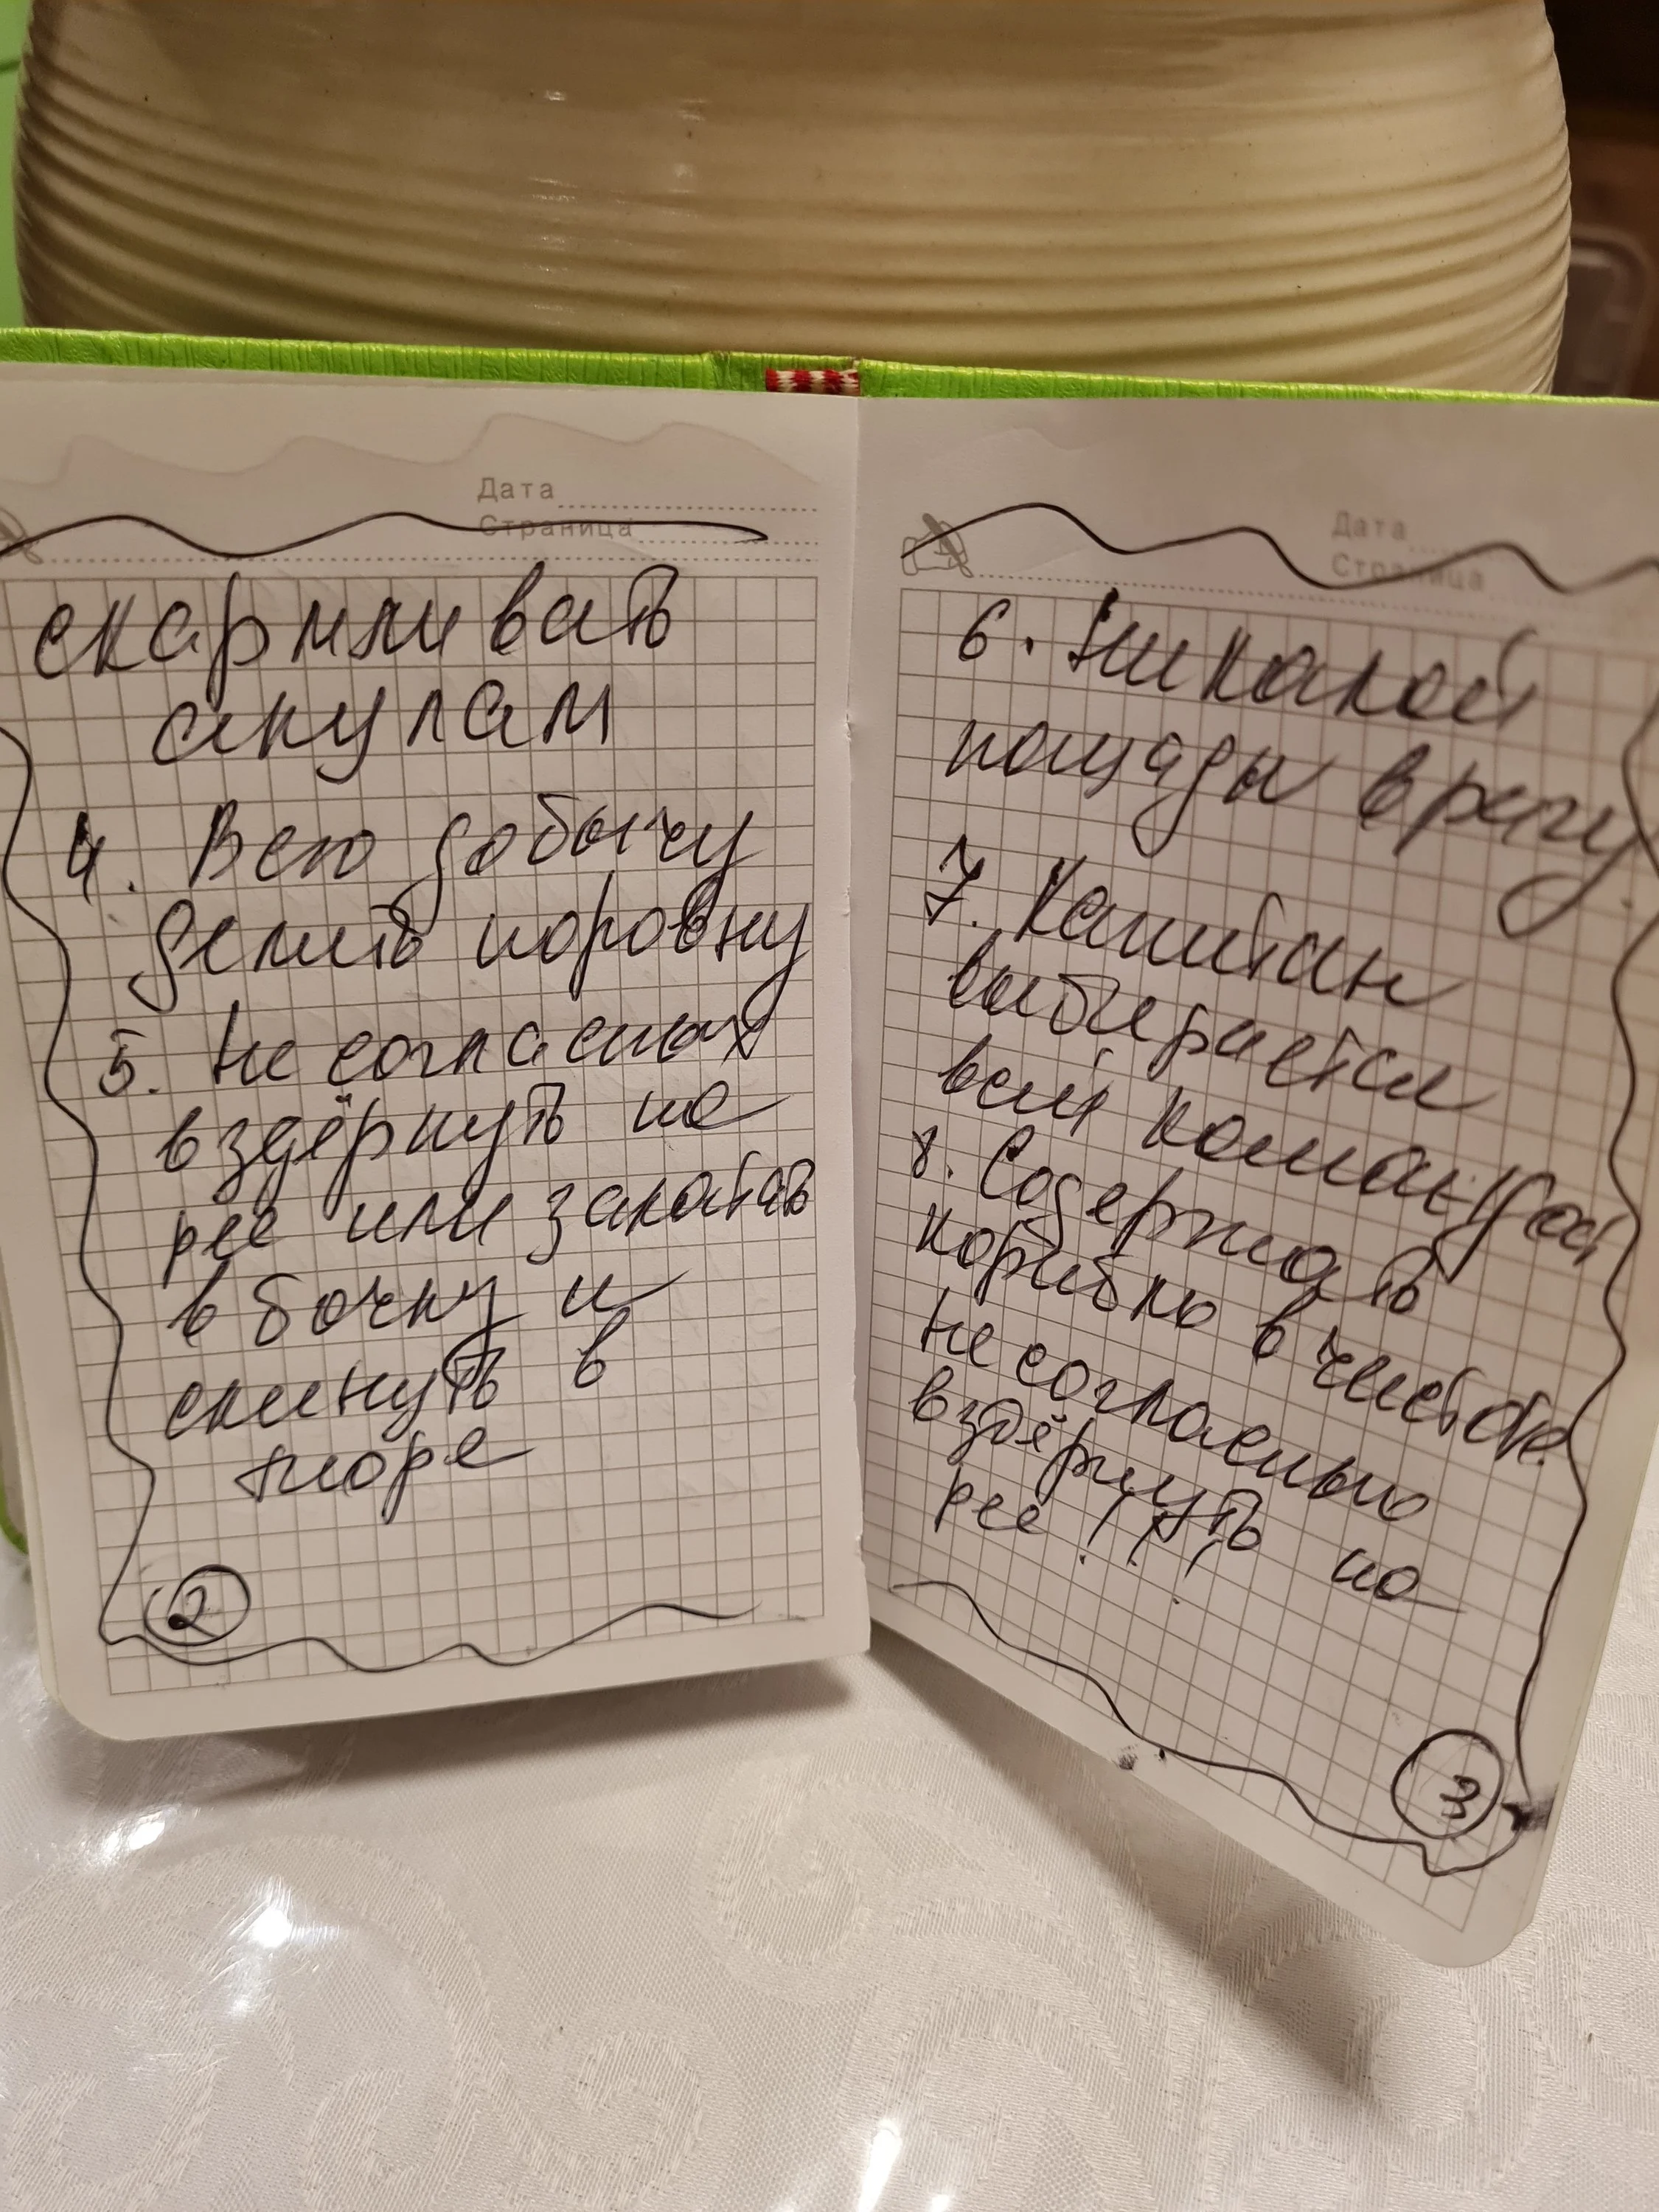 Дата
Страница
скармливать
акулам
4. Всю добычу
делить поровну
5. Не согласных
вздёрнуть на
рее или закатать
в бочку и
скинуть в
море
2
Дата
Страница
6. Никакой
пощады врагу
7. Капитан
выбирается
всей командой
8. Содержать
корабль в чистоте.
Не согласных
вздёрнуть на
рее!!!
3